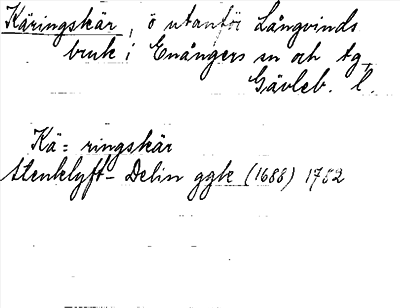 Käringskär, ö utanför Långvinds
bruk i Enångers sn och tg
Gävleb. l.
Kä= ringskär
Stenklyft- Delin ggbe (1688) 1752